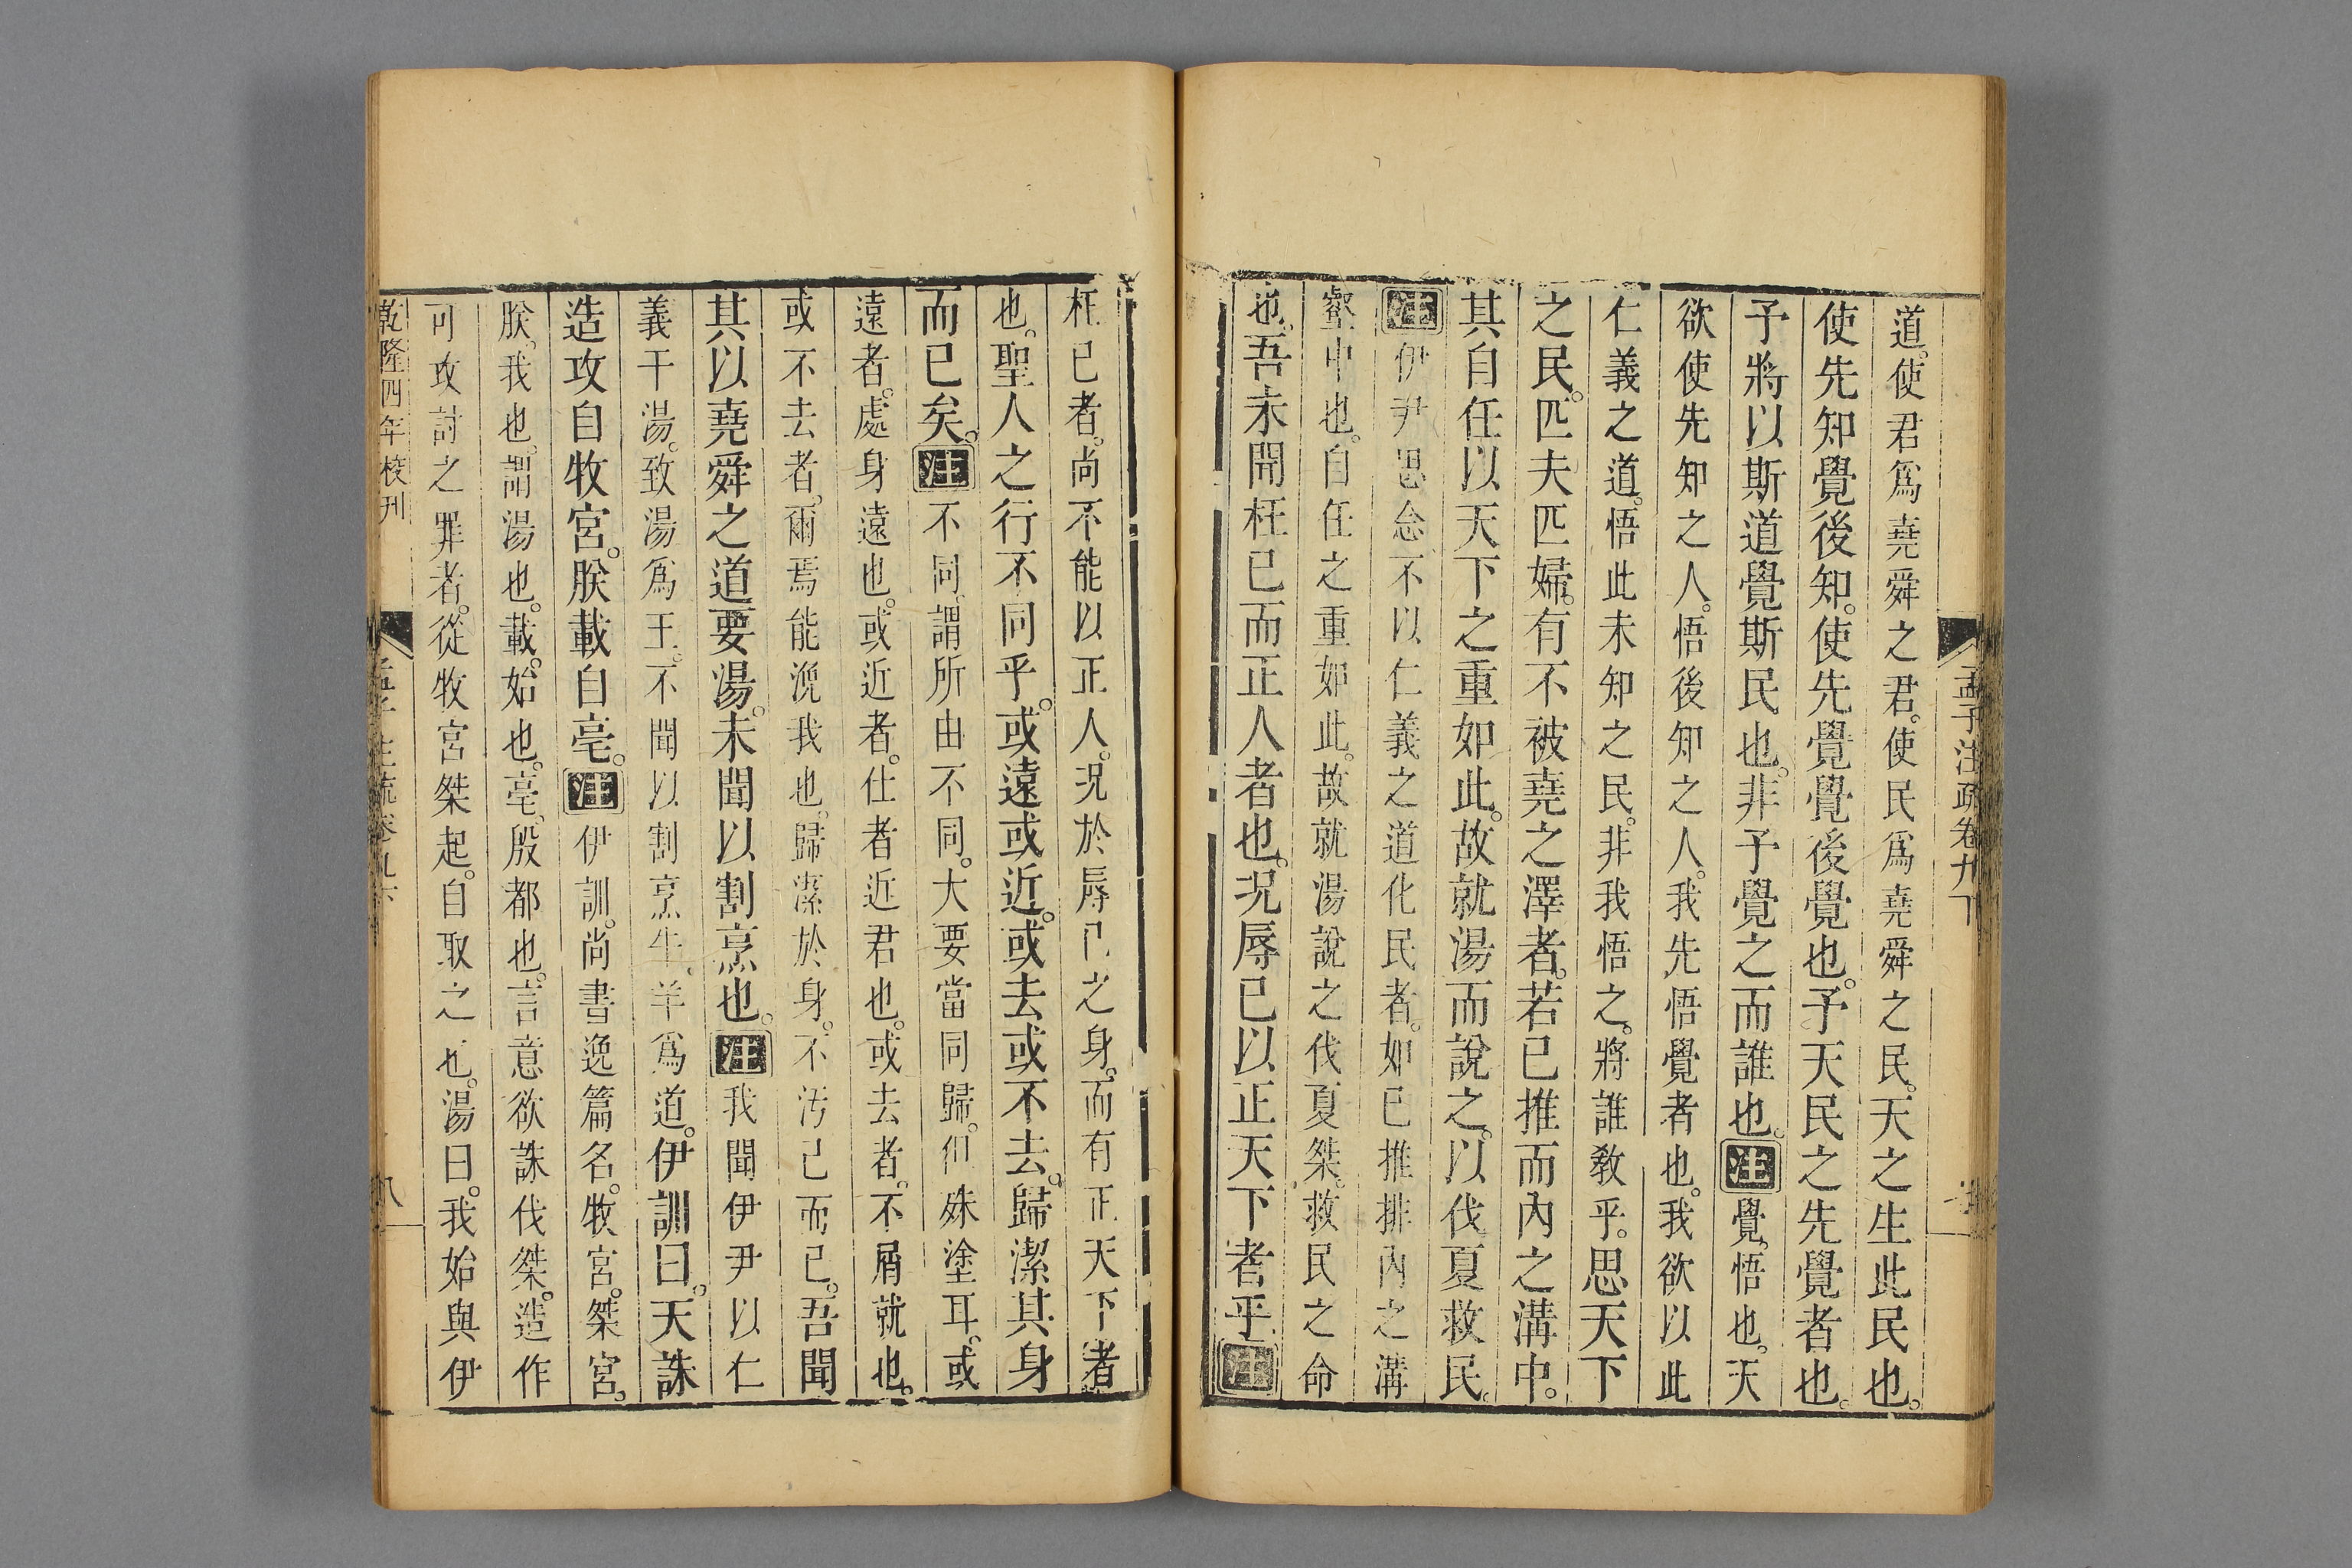 道。使君爲堯舜之君。使民爲堯舜之民。天之生此民也。
使先知覺後知。使先覺覺後覺也。予天民之先覺者也。
予將以斯道覺斯民也。非予覺之而誰也。注覺。悟也。天
欲使先知之人。悟後知之人。我先悟覺者也。我欲以此
仁義之道。悟此未知之民。非我悟之。將誰敎乎。思天下
之民。匹夫匹婦。有不被堯之澤者。若已推而內之溝中。
其自任以天下之重如此。故就湯而說之。以伐夏救民。
注伊尹思念不以仁義之道化民者。如已推排內之溝
壑中也。自任之重如此。故就湯說之伐夏桀。救民之命
也。吾未聞枉已而正人者也。況辱已以正天下者乎。注
孟子注疏卷九下
枉已者。尚不能以正人。況於辱已之身。而有正天下者
也。聖人之行不同乎。或遠或近。或去或不去。歸潔其身
而已矣。注不同。謂所由不同。大要當同歸。但殊塗耳。或
遠者。處身遠也。或近者。仕者近君也。或去者。不屑就也。
或不去者。爾焉能浼我也。歸潔於身。不汚已而已。吾聞
其以堯舜之道要湯。未聞以割烹也。注我聞伊尹以仁
義干湯。致湯爲王。不聞以割烹牛羊爲道。伊訓曰。天誅
造攻自牧宮。朕載自亳。注伊訓。尚書逸篇名。牧宮。桀宮。
朕。我也。謂湯也。載。始也。亳。殷都也。言意欲誅伐桀。造作
可攻討之罪者。從牧宮桀起。自取之也。湯曰。我始與伊
乾隆四年校刊
孟子注疏卷九下
八